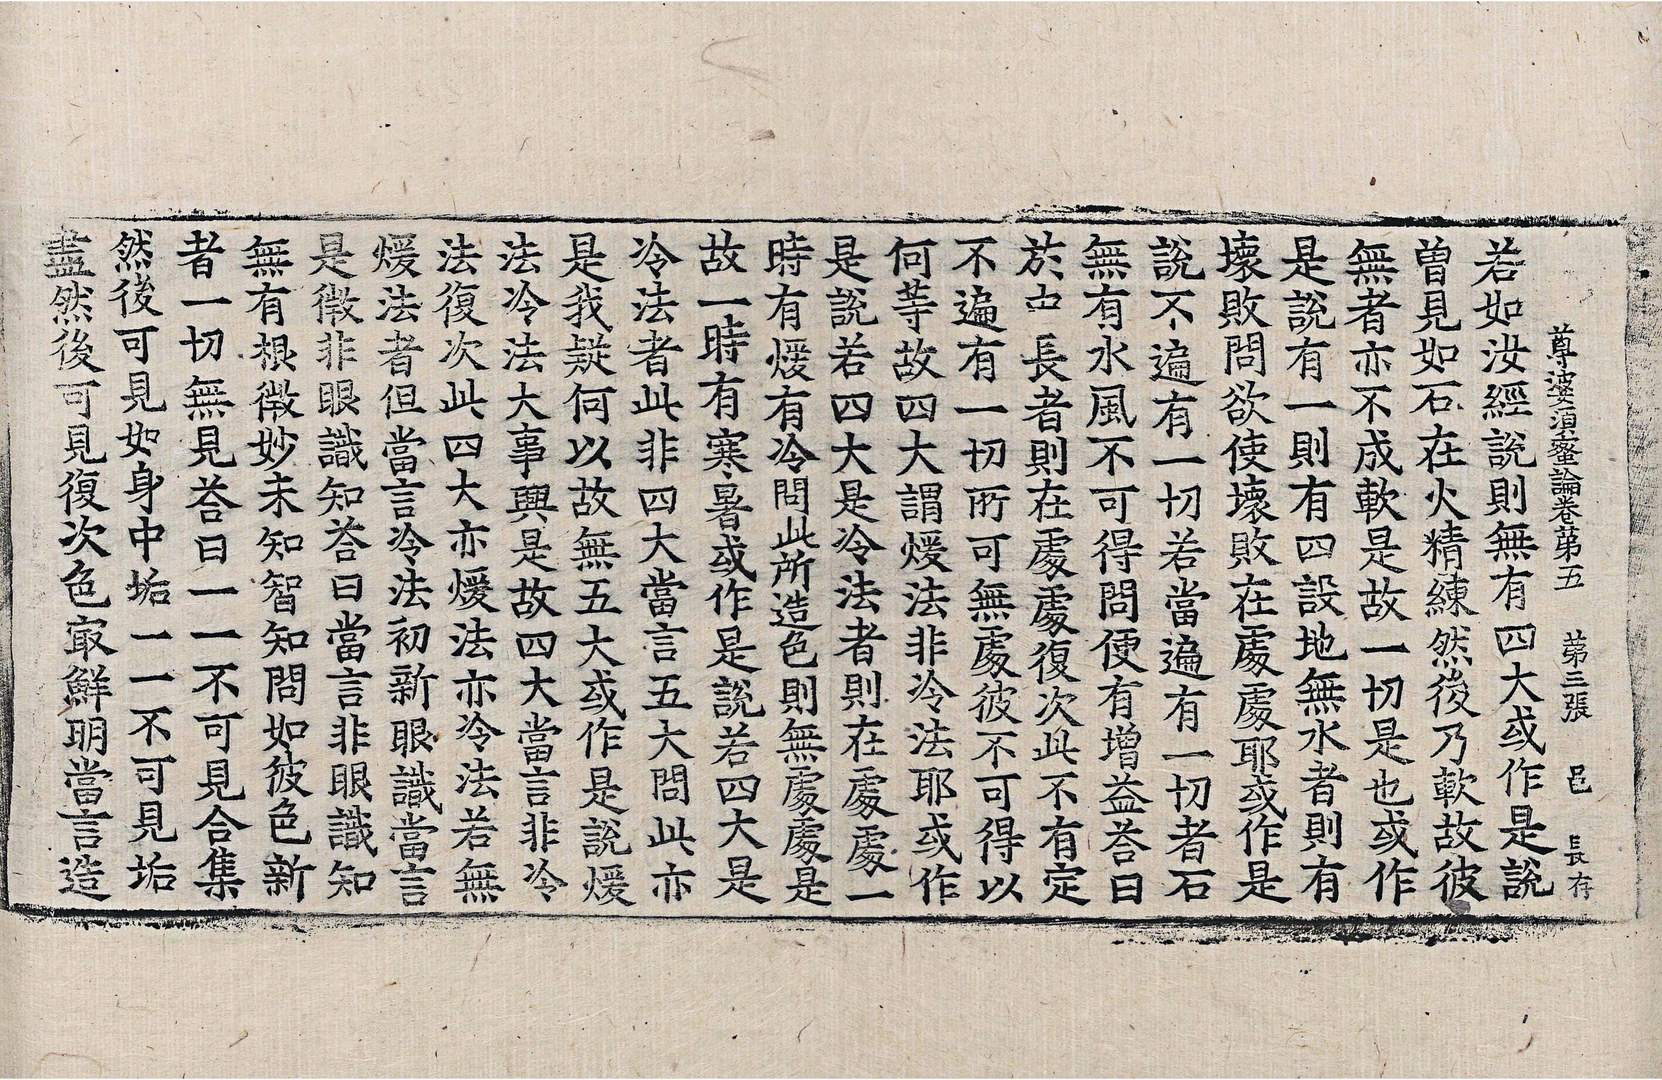 尊婆須蜜論卷第五 第三張 邑 長存
若如汝經說則無有四大或作是說
曽見如石在火精練然後乃軟故彼
無者亦不成軟是故一切是也或作
是說有一則有四設地無水者則有
壞敗問欲使壞壞敗在處處耶或作是
說不遍有一切若當遍有一切者石
無有水風不可得問便有增益荅曰
於中長者則在處處復次此不有定
不遍有一切所可無處彼不可得以
何等故四大謂煖法非冷法耶或作
是說若四大是冷法者則在處處一
時有煖有冷問此所造色則無處處是
故一時有寒暑或作是說若四大是
冷法者此非四大當言五大問此亦
是我疑何以故無五大或作是說煖
法冷法大事興是故四大當言非冷
法復次此四大亦煖法亦冷法若無
煖法者但當言冷法初新眼識當言
是徵非眼識知荅曰當言非眼識知
無有根徵妙未知智知問如彼色新
者一切無見荅曰一一不可見合集
然後可見如身中垢一一不可見垢
盡然後可見復次色㝡鮮明當言造